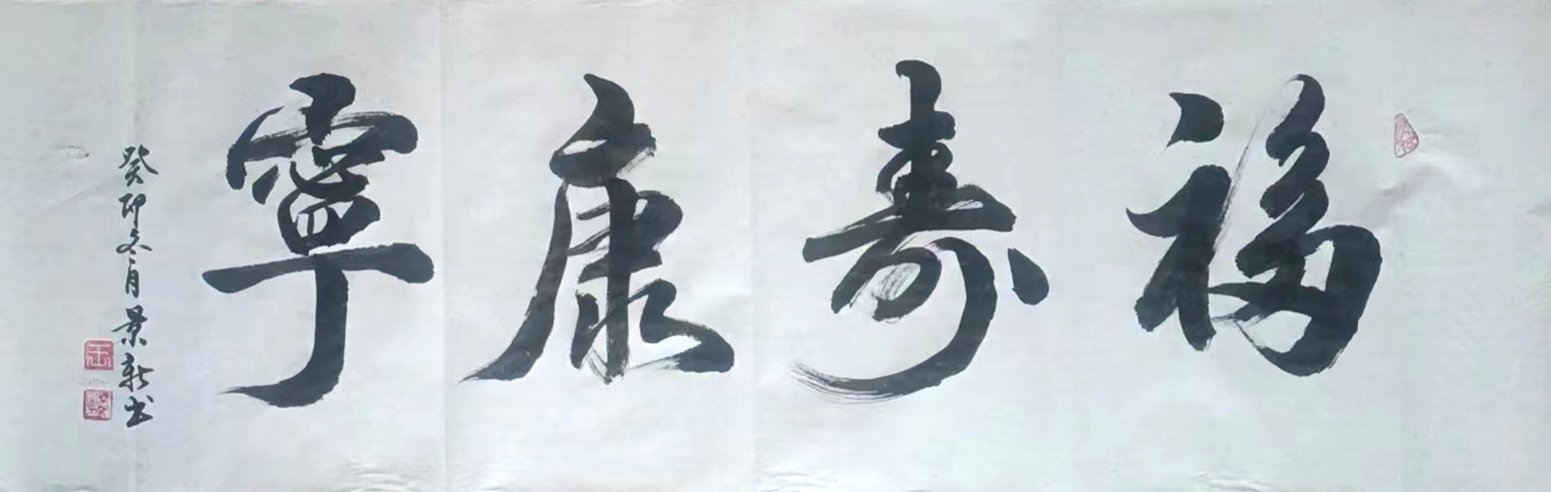 福壽康寧
癸卯冬月景新书
王